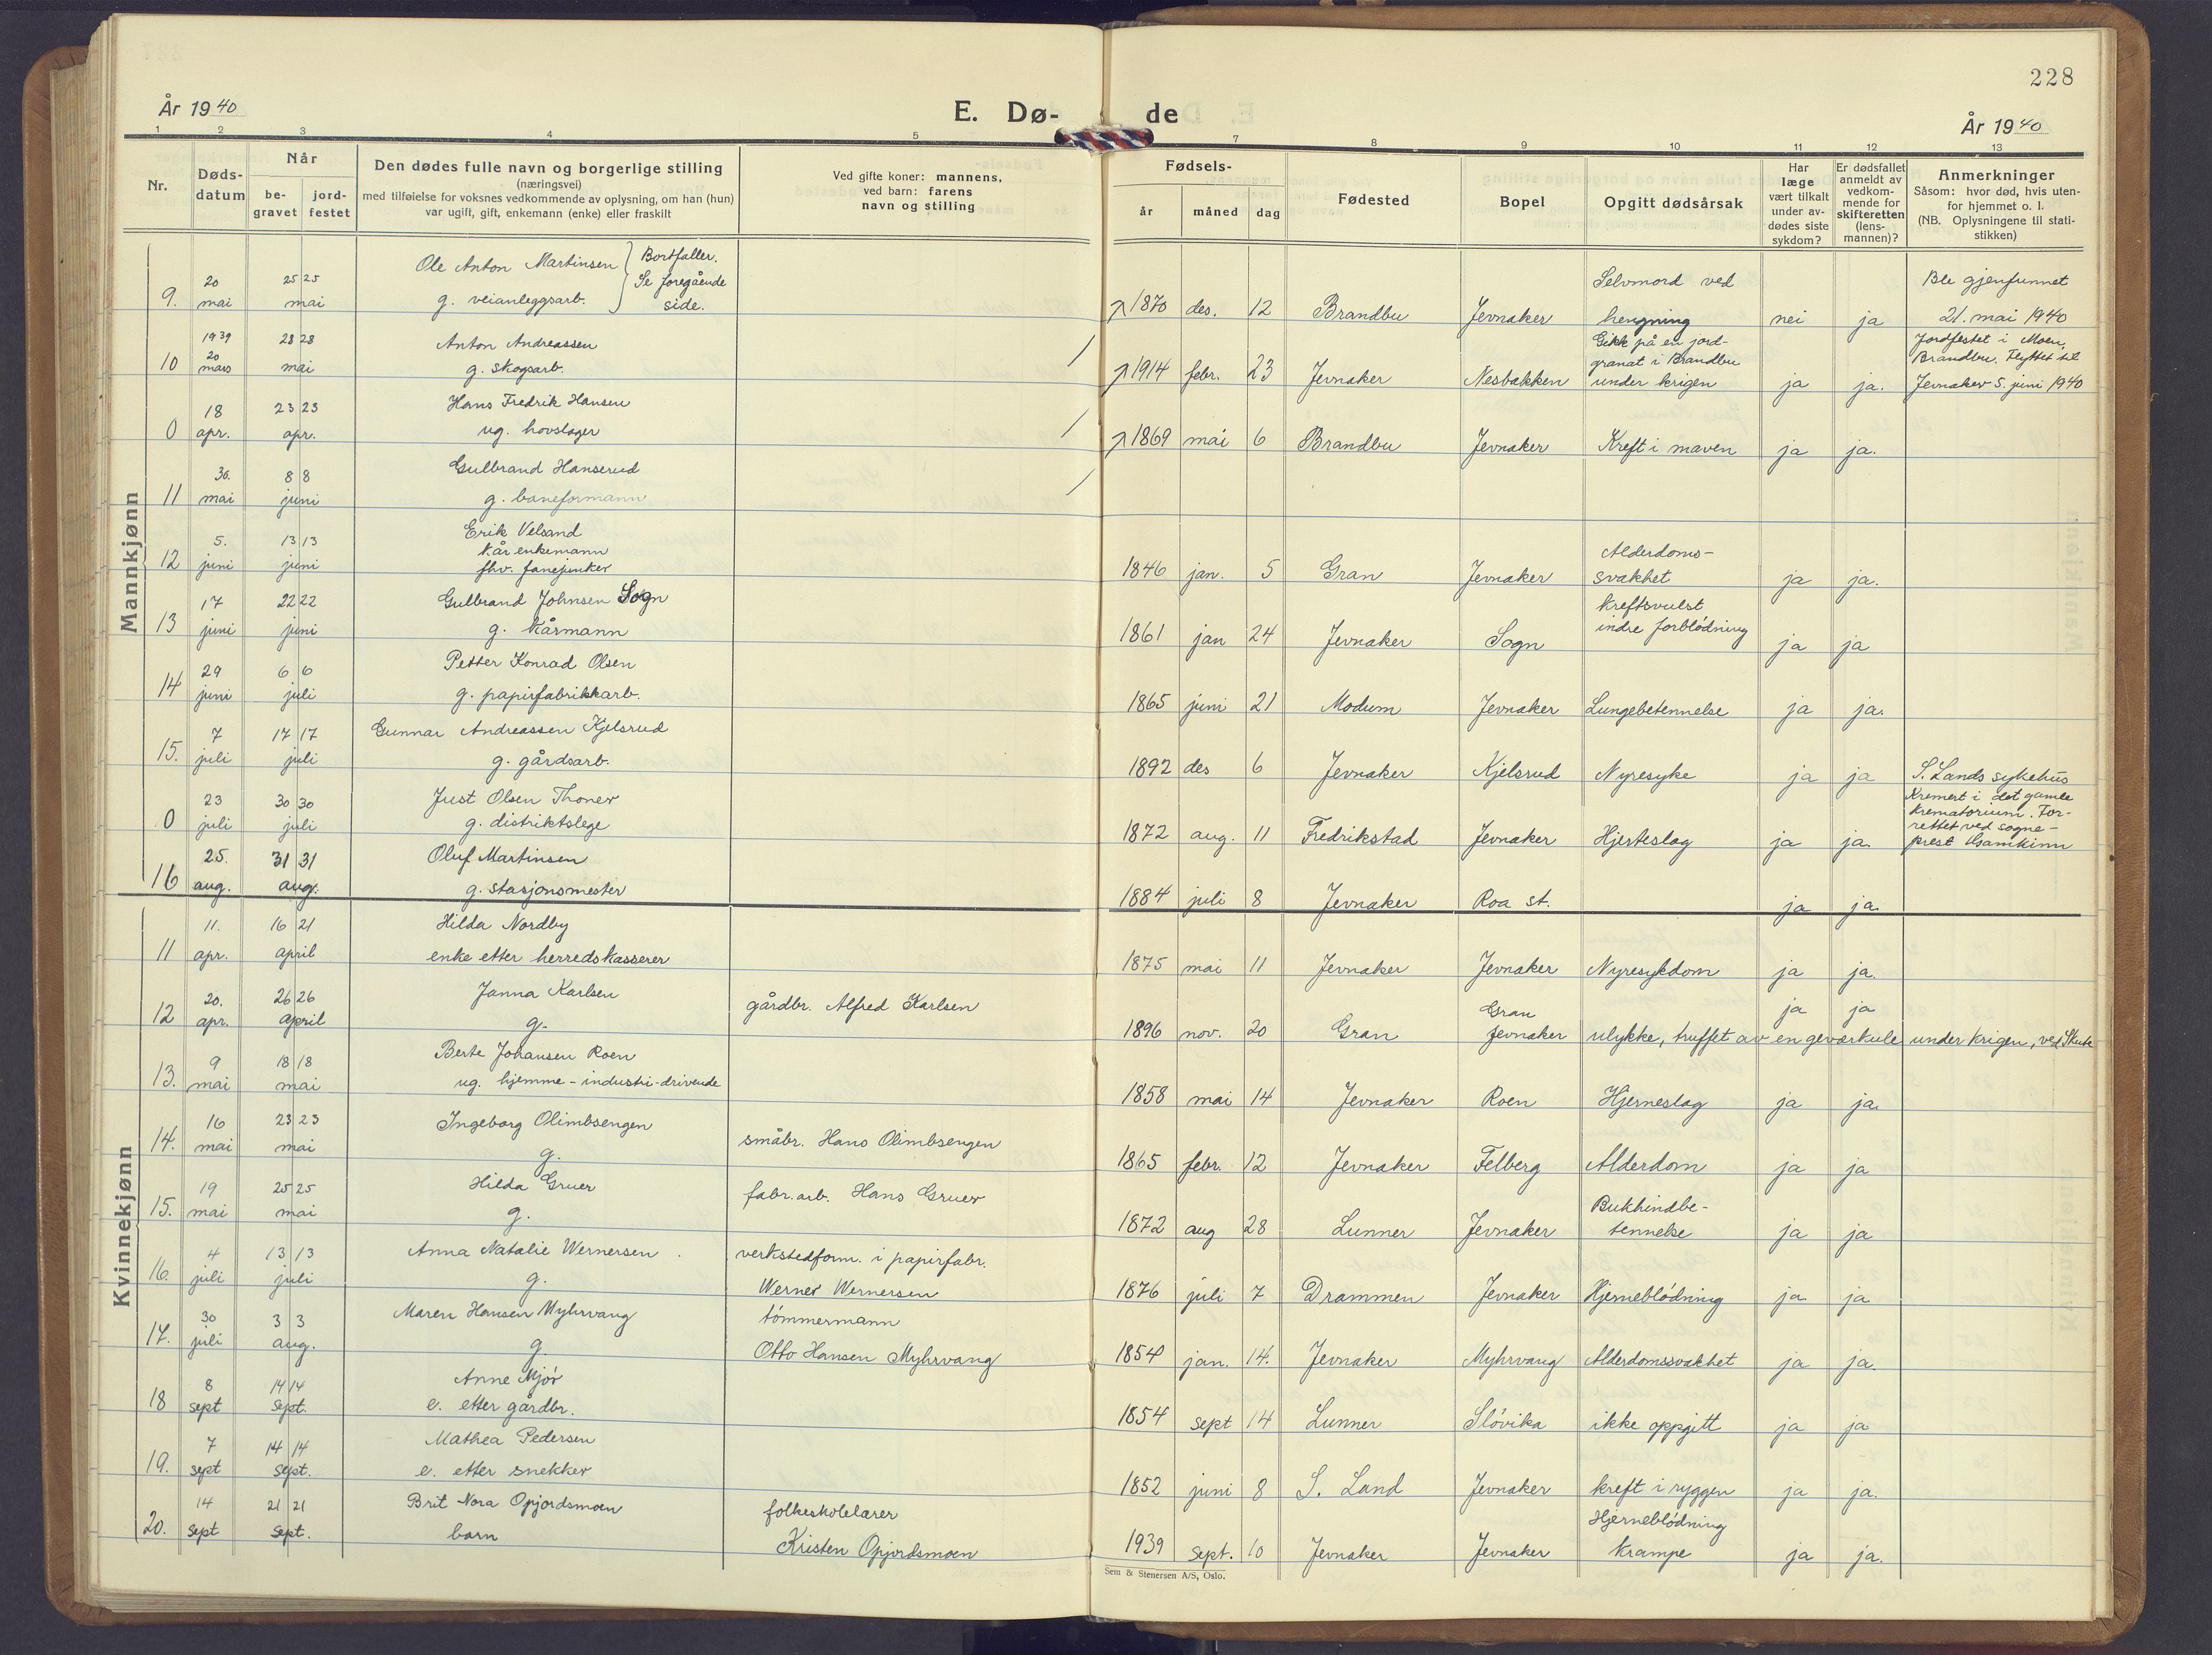 228
År 1940
E. Dø-
de
År 1940
1 2 3 4 5 7 8 9 10 11 12 13
Nr.
Døds-
datum
Når
be-
gravet
jord-
festet
Den dødes fulle navn og borgerlige stilling
(næringsvei)
med tilføielse for voksnes vedkommende av oplysning, om han (hun)
var ugift, gift, enkemann (enke) eller fraskilt
Ved gifte koner: mannens,
ved barn: farens
navn og stilling
Fødsels-
år måned dag
Fødested
Bopel
Opgitt dødsårsak
Har
læge
vært tilkalt
under av-
dødes siste
sykdom?
Er dødsfallet
anmeldt av
vedkom-
mende for
skifteretten
(lens-
mannen)?
Anmerkninger
Såsom: hvor død, hvis uten-
for hjemmet o. l.
(NB. Oplysningene til stati-
stikken)
Mannkjønn
9. 20 mai 25 25 mai Ole Anton Martinsen g. veianleggsarb. Bortfaller. Se foregående side. 1870 des. 12 Brandbu Jevnaker Selvmord ved hengning nei ja Ble gjenfunnet 21. mai 1940
10 1939 20 mars 28 28 mai Anton Andreassen g. skogsarb. 1914 febr. 23 Jevnaker Nesbakken Gikk på en jord- granat i Brandbu under krigen ja ja. Jordfestet i Moen, Brandbu. Flyttet til Jevnaker 5. juni 1940
0 18 apr. 23 23 apr. Hans Fredrik Hansen ug. hovslager 1869 mai 6 Brandbu Jevnaker Kreft i maven ja ja.
11 30. mai 8 8 juni Gulbrand Hanserud g. baneformann
12 5. juni 13 13 juni Erik Velsand kår enkemann fhv. fanejunker 1846 jan. 5 Gran Jevnaker Alderdoms- svakhet ja ja.
13 17 juni 22 22 juni Gulbrand Johnsen Sogn g. kårmann 1861 jan 24 Jevnaker Sogn kreftsvulst indre forblödning ja ja
14 29 juni 6 6 juli Petter Konrad Olsen g. papirfabrikkarb. 1865 juni 21 Modum Jevnaker Lungebetennelse ja ja.
15. 7 juli 17 17 juli Gunnar Andreassen Kjelsrud g. gårdsarb. 1892 des 6 Jevnaker Kjelsrud Nyresyke ja ja S. Lands sykehus
0 23 juli 30 30 juli Just Olsen Thoner g. distriktslege 1872 aug. 11 Fredrikstad Jevnaker Hjerteslag ja ja. Kremert i det gamle krematorium. For- rettet ved sogne- prest
16 25. aug. 31 31 aug. Oluf Martinsen g. stasjonsmester 1884 juli 8 Jevnaker Roa st. ja ja.
Kvinnekjønn
11 11. apr. 16 21 april Hilda Nordby enke etter herredskasserer 1875 mai 11 Jevnaker Jevnaker Nyresykdom ja ja.
12 20. apr. 26 26 april Janna Karlsen g. gårdbr. Alfred Karlsen 1896 nov. 20 Gran Gran Jevnaker ulykke, truffet av en geværkule under krigen, ved Skute ja ja
13. 9 mai 18 18 mai Berte Johansen Roen ug. hjemme-industri-drivende 1858 mai 14 Jevnaker Roen Hjerneslag ja ja.
14. 16 mai 23 23 mai Ingeborg Olimbsengen g. småbr. Hans Olimbsengen 1865 febr. 12 Jevnaker Felberg Alderdom ja ja
15. 19 mai 25 25 mai Hilda Gruer g. fabr.arb. Hans Gruer 1872 aug 28 Lunner Jevnaker Bukhindbe- tennelse ja ja
16. 4 juli 13 13 juli Anna Natalie Wernersen g. verkstedform. i papirfabr. Werner Wernersen 1876 juli 7 Drammen Jevnaker Hjerneblödning ja ja
17. 30 juli 3 3 aug. Maren Hansen Myhrvang g. tömmermann Otto Hansen Myhrvang 1854 jan. 14. Jevnaker Myhrvang Alderdomssvakhet ja ja.
18 8 sept 14 14 sept. Anne Mjör e. etter gårdbr. 1854 sept 14 Lunner Slövika ikke oppgitt ja ja
19. 7 sept 14 14 sept. Mathea Pedersen e. etter snekker 1852 juni 8 S. Land Jevnaker kreft i ryggen ja ja.
20. 14 sept 21 21 sept. Brit Nora Opjordsmoen barn folkeskolelærer Kristen Opjordsmoen 1939 sept. 10 Jevnaker Jevnaker Hjerneblödning krampe ja ja.
Sem & Stenersen A/S, Oslo.